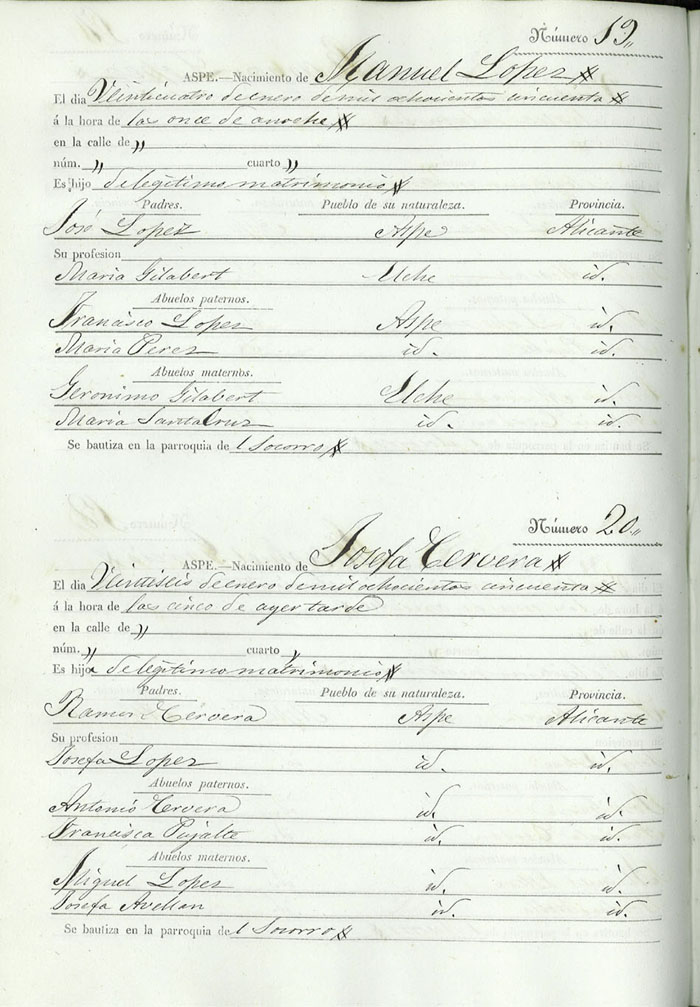 Número 19„
ASPE.—Nacimiento de Manuel Lopez
El dia Veinticuatro de enero de mil ochocientos cincuenta
á la hora de las once de anoche
en la calle de „
núm. „ cuarto „
Es hijo de legitimo matrimonio
Padres. Pueblo de su naturaleza. Provincia.
José Lopez Aspe Alicante
Su profesion
Maria Gilabert Elche id.
Abuelos paternos.
Francisco Lopez Aspe id.
Maria Perez id. id.
Abuelos maternos.
Geronimo Gilabert Elche id.
Maria SantaCruz id. id.
Se bautiza en la parroquia de l Socorro
Número 20„
ASPE.—Nacimiento de Josefa Cervera
El dia Veintiseis de enero de mil ochocientos cincuenta
á la hora de las cinco de ayer tarde
en la calle de „
núm. „ cuarto „
Es hija de legitimo matrimonio
Padres. Pueblo de su naturaleza. Provincia.
Ramon Cervera Aspe Alicante
Su profesion
Josefa Lopez id. id.
Abuelos paternos.
Antonio Cervera id. id.
Francisca Pujalte id. id.
Abuelos maternos.
Miguel Lopez id. id.
Josefa Avellan id. id.
Se bautiza en la parroquia de l Socorro